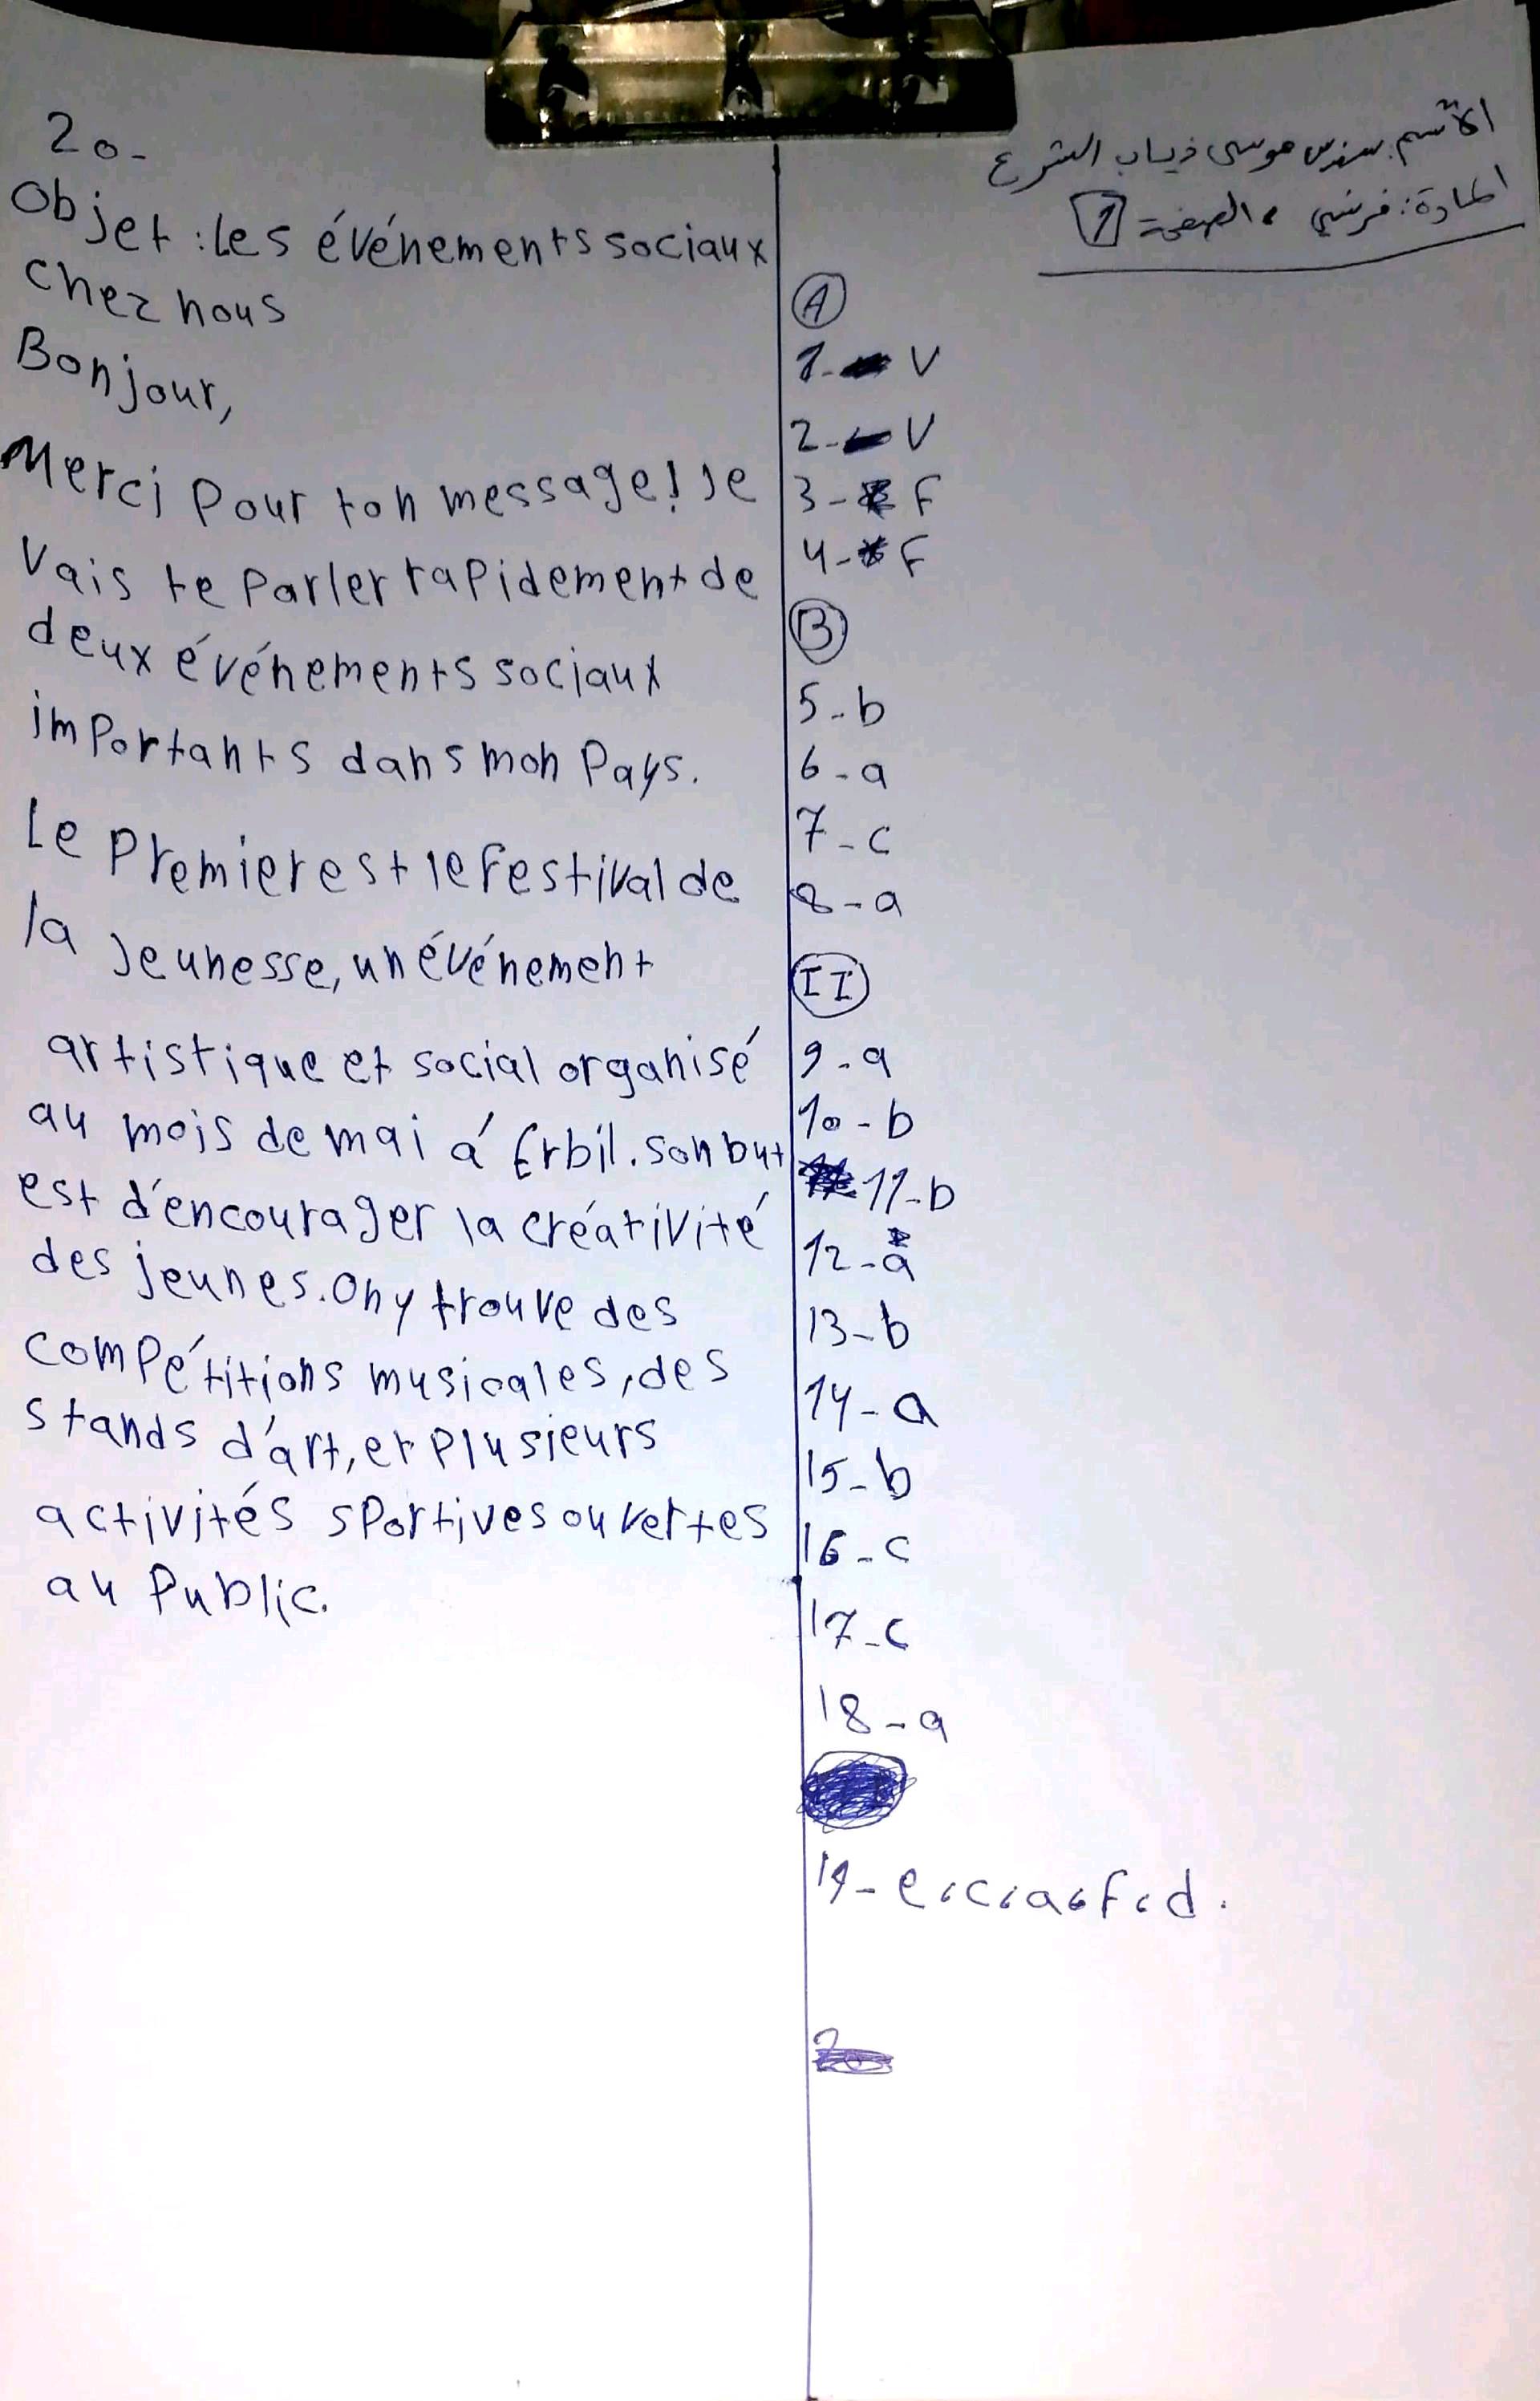 الأسم: سندس موسى ذياب الشرع
المادة: فرنسي ، الصفحة 1
A
1- V
2- V
3- F
4- F
B
5-b
6-a
7-c
8-a
II
9-a
10-b
11-b
12-a
13-b
14-a
15-b
16-c
17-c
18-a
19- e،c،a،f،d.
20-
Objet: Les événements sociaux
chez nous
Bonjour,
Merci pour ton message! Je
vais te parler rapidement de
deux événements sociaux
importants dans mon pays.
Le premier est le festival de
la Jeunesse, un événement
artistique et social organisé
au mois de mai á Erbil. Son but
est d'encourager la créativité
des jeunes. On y trouve des
compétitions musicales, des
stands d'art, et plusieurs
activités sportives ouvertes
au public.